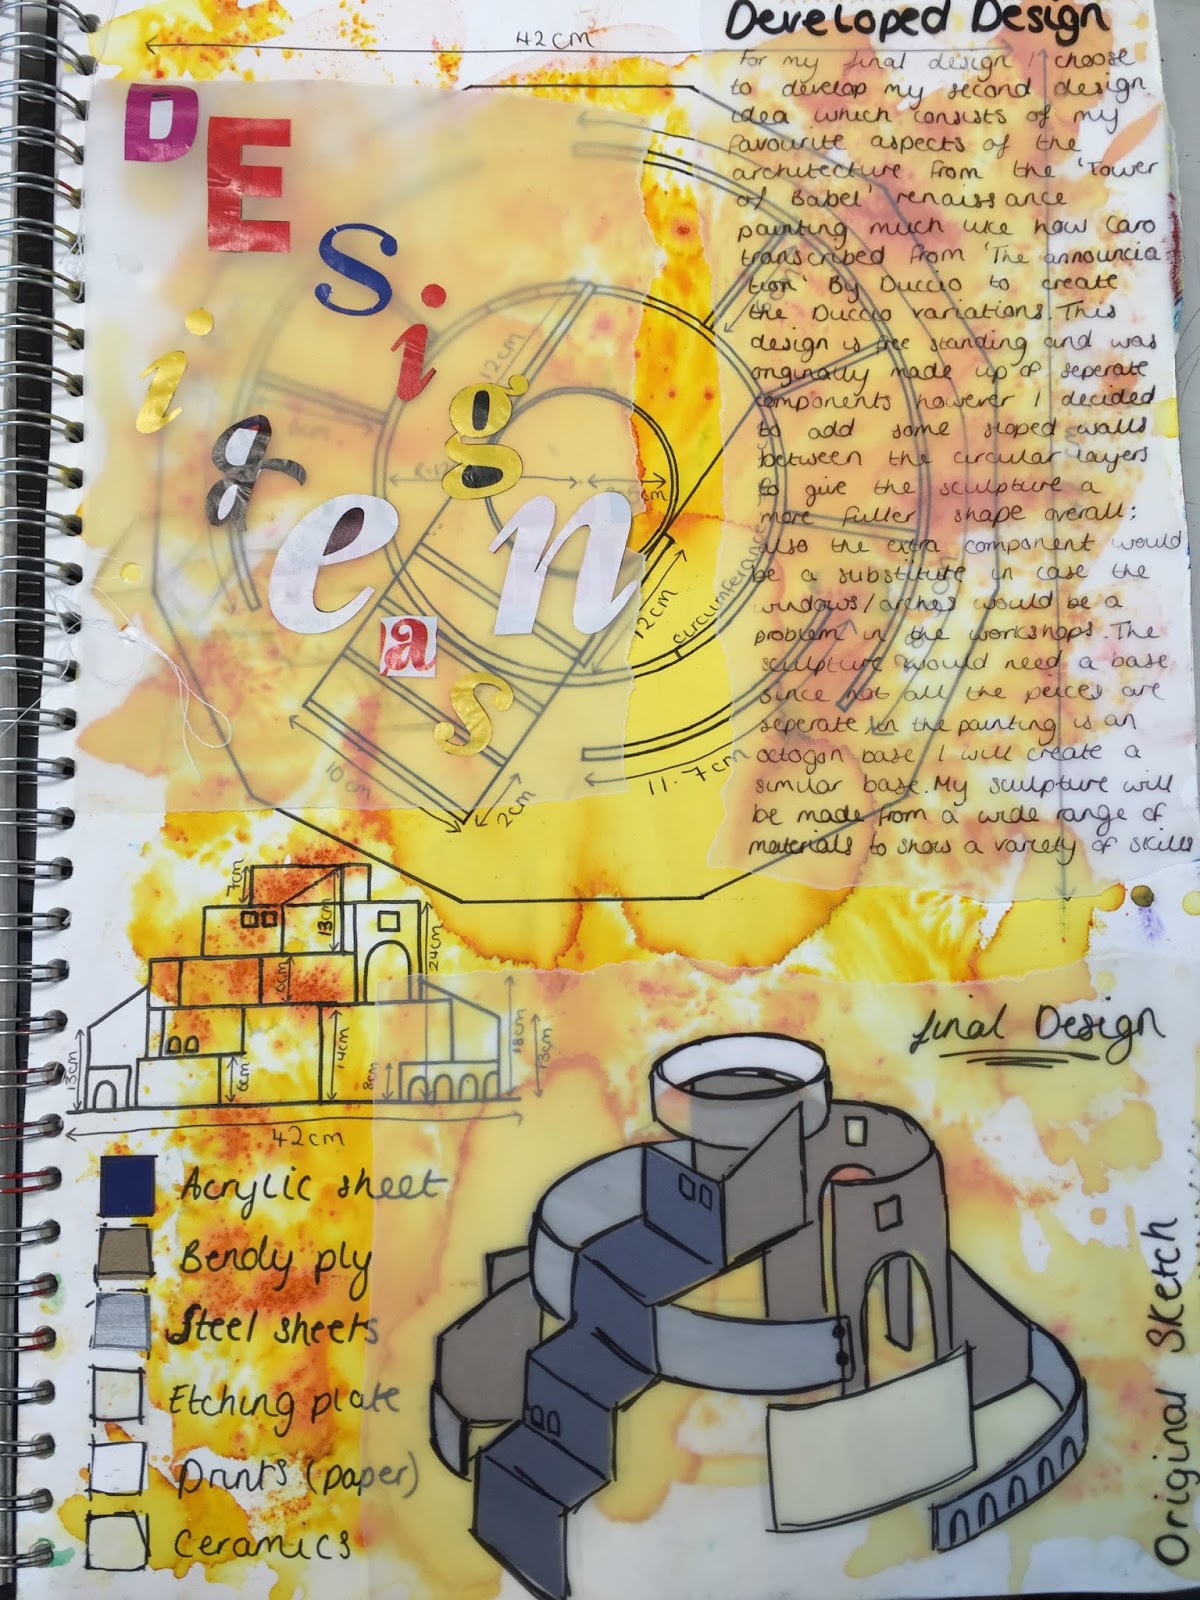 Developed Design
42cm
For my final design I choose
to develop my second design
idea which consists of my
favourite aspects of the
architecture from the 'Tower
of Babel' renaissance
painting much like how Caro
transcribed from 'The announcia
tion' By Duccio to create
the Duccio variations. This
design is free standing and was
originally made up of seperate
components however I decided
to add some sloped walls
between the circular layers
to give the sculpture a
more fuller shape overall;
also the extra component would
be a substitute in case the
windows/arches would be a
problem in the workshops. The
sculpture would need a base
since not all the peices are
seperate, in the painting is an
octogon base I will create a
similar base. My sculpture will
be made from a wide range of
materials to show a variety of skills
DESign
ideas
12cm
12cm
circumference
11.7cm
10cm
2cm
7cm
13cm
24cm
6cm
13cm
6cm
14cm
8cm
18cm
13cm
42cm
Final Design
Acrylic sheet
Bendy ply
Steel sheets
Etching plate
Prints (paper)
Ceramics
Original Sketch